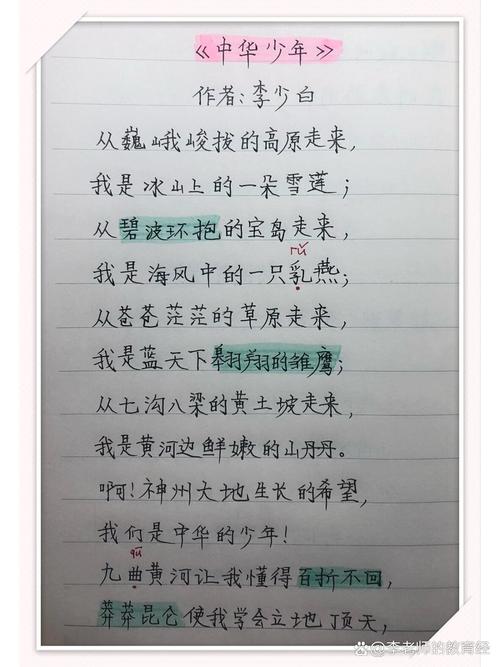 《中华少年》
作者:李少白
从巍峨峻拔的高原走来,
我是冰山上的一朵雪莲;
从碧波环抱的宝岛走来,
rǔ
我是海风中的一只乳燕;
从苍苍茫茫的草原走来,
我是蓝天下翱翔的雏鹰;
从七沟八梁的黄土坡走来,
我是黄河边鲜嫩的山丹丹。
啊!神州大地生长的希望,
我们是中华的少年!
qū
九曲黄河让我懂得百折不回,
莽莽昆仑使我学会立地顶天,
@李老师的教育经